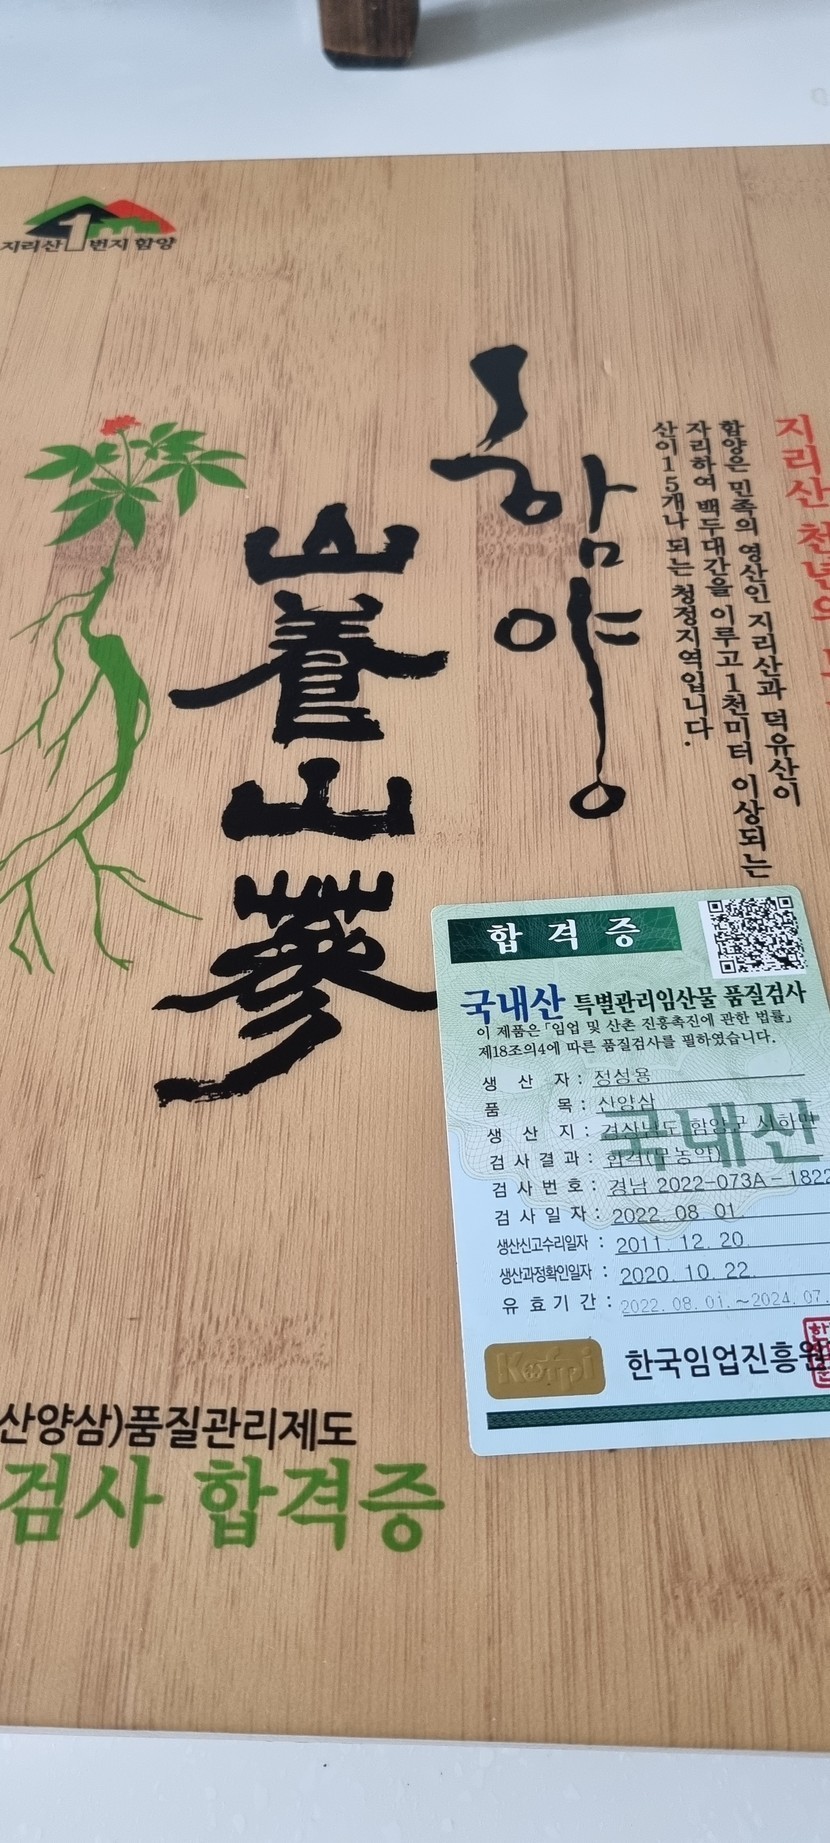 지리산 1번지 함양
지리산 천년의
함양은 민족의 영산인 지리산과 덕유산이
자리하여 백두대간을 이루고 1천미터 이상되는
산이 15개나 되는 청정지역입니다.
함양
山養山蔘
합격증
국내산 특별관리임산물 품질검사
이 제품은 「임업 및 산촌 진흥촉진에 관한 법률」
제18조의4에 따른 품질검사를 필하였습니다.
생 산 자 : 정성용
품 목 : 산양삼
생 산 지 : 경상남도 함양군 서하면
국내산
검 사 결 과 : 합격(무농약)
검 사 번 호 : 경남 2022-073A-1822
검 사 일 자 : 2022. 08. 01.
생산신고수리일자 : 2011. 12. 20.
생산과정확인일자 : 2020. 10. 22.
유 효 기 간 : 2022. 08. 01.~2024. 07.
Kofpi 한국임업진흥원
산양삼)품질관리제도
검사 합격증